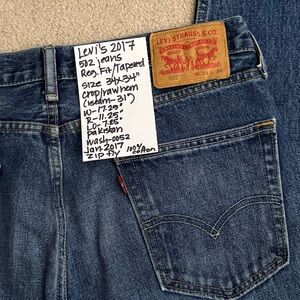 Levi's 2017
502 jeans
Reg. Fit/Tapered
size 34x34"
crop/rawhem
(inseam-31")
W-17.25"
R-11.25"
LO-7.25"
pakistan
wash-0052
Jan 2017
zip fly 100% cotton
LEVI STRAUSS & CO.
502
W 34 L 34